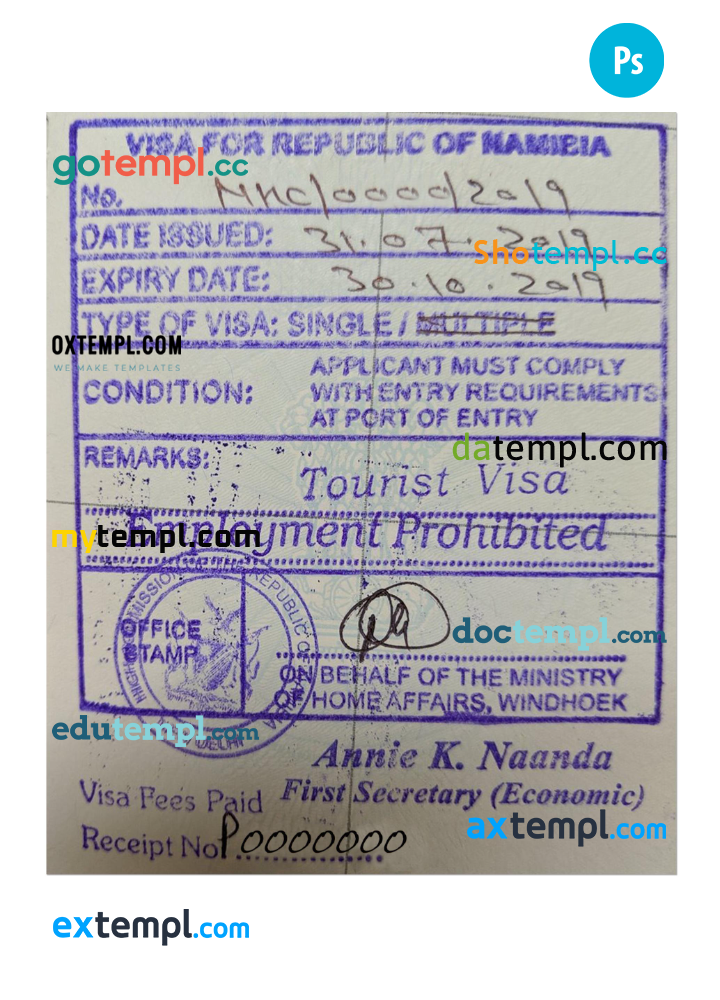 Ps
VISA FOR REPUBLIC OF NAMIBIA
gotempl.cc
No. NHC/0000/2019
DATE ISSUED: 31.07.2019
Shotempl.cc
EXPIRY DATE: 30.10.2019
TYPE OF VISA: SINGLE / MULTIPLE
OXTEMPL.COM
WE MAKE TEMPLATES
APPLICANT MUST COMPLY
CONDITION: WITH ENTRY REQUIREMENTS
AT PORT OF ENTRY
datempl.com
REMARKS:
Tourist Visa
mytempl.com
Employment Prohibited
OFFICE
STAMP
REPUBLIC OF
DELHI
doctempl.com
ON BEHALF OF THE MINISTRY
OF HOME AFFAIRS, WINDHOEK
edutempl.com
Annie K. Naanda
First Secretary (Economic)
Visa Fees Paid
axtempl.com
Receipt No P0000000
extempl.com